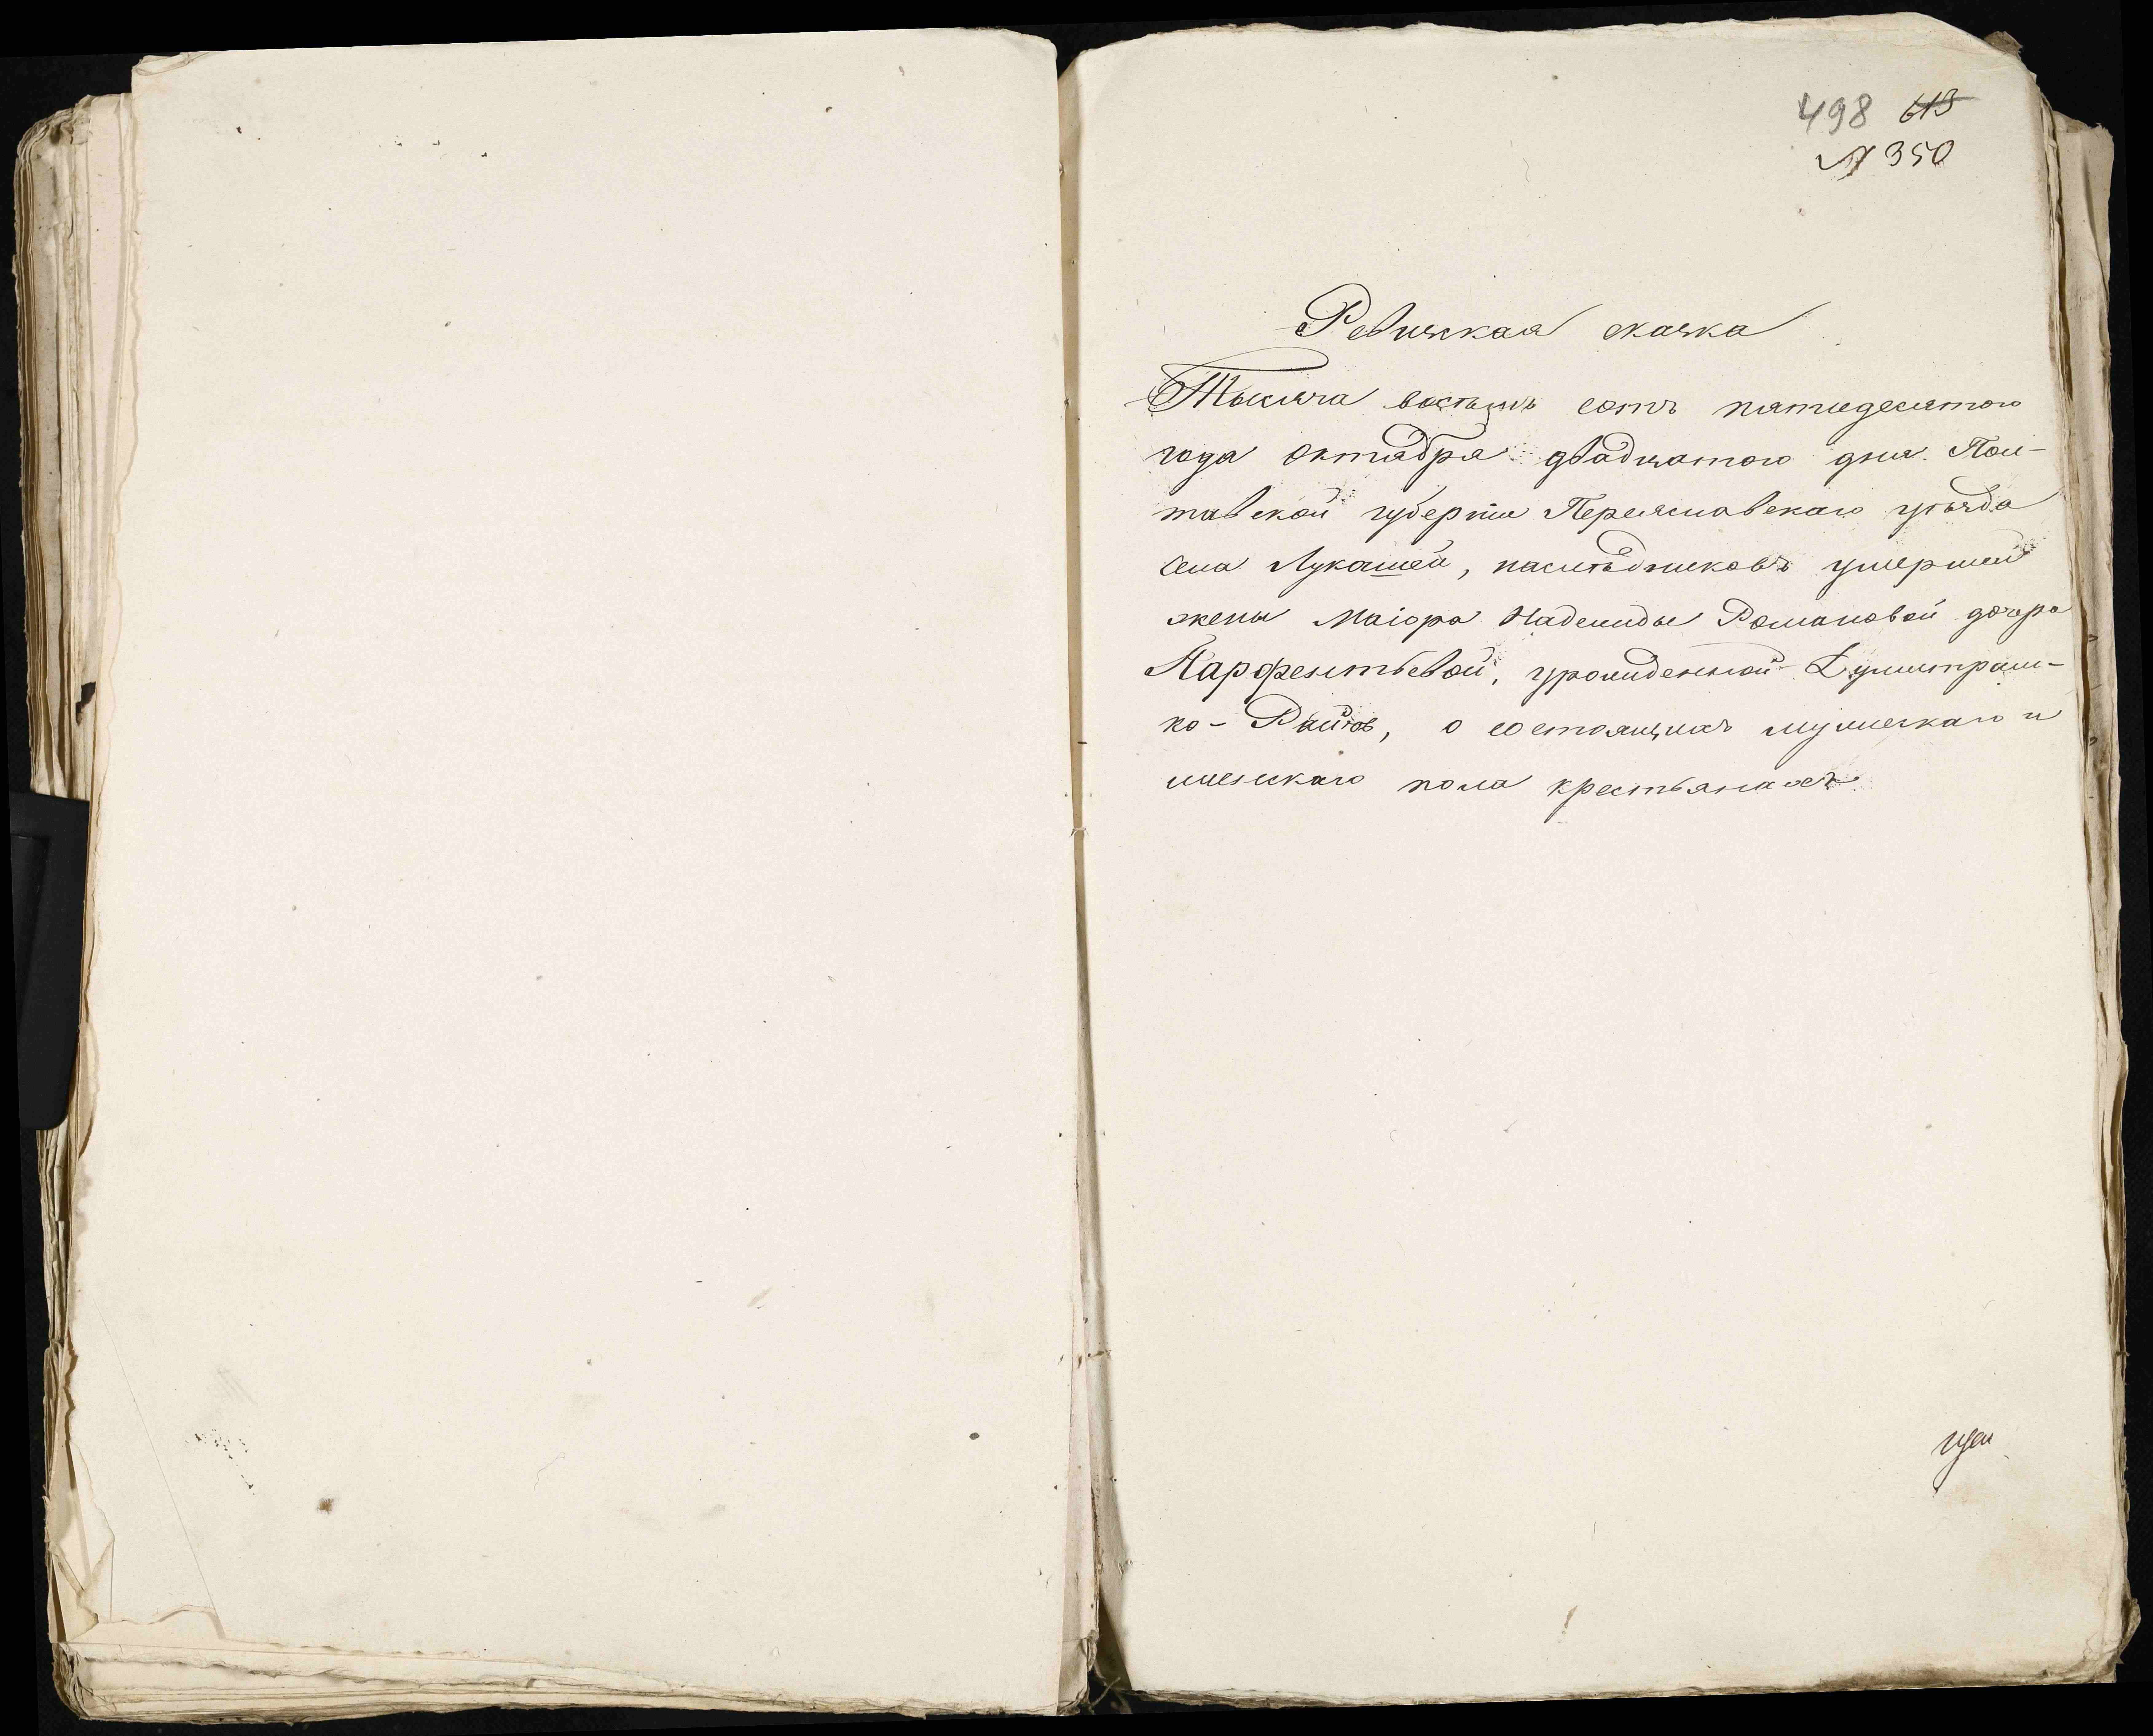 498 613
№ 350
Ревизская сказка
Тысяча восемь сотъ пятидесятого
года Октября двадцатого дня Пол-
тавской губерніи Переяславскаго уѣзда
села Лукашей, наслѣдниковъ умершей
жены Маіора Надежды Романовой дочери
Парфентьевой, урожденной Думитраш-
ко-Райчъ, о состоящихъ мужескаго и
женскаго пола крестьянахъ